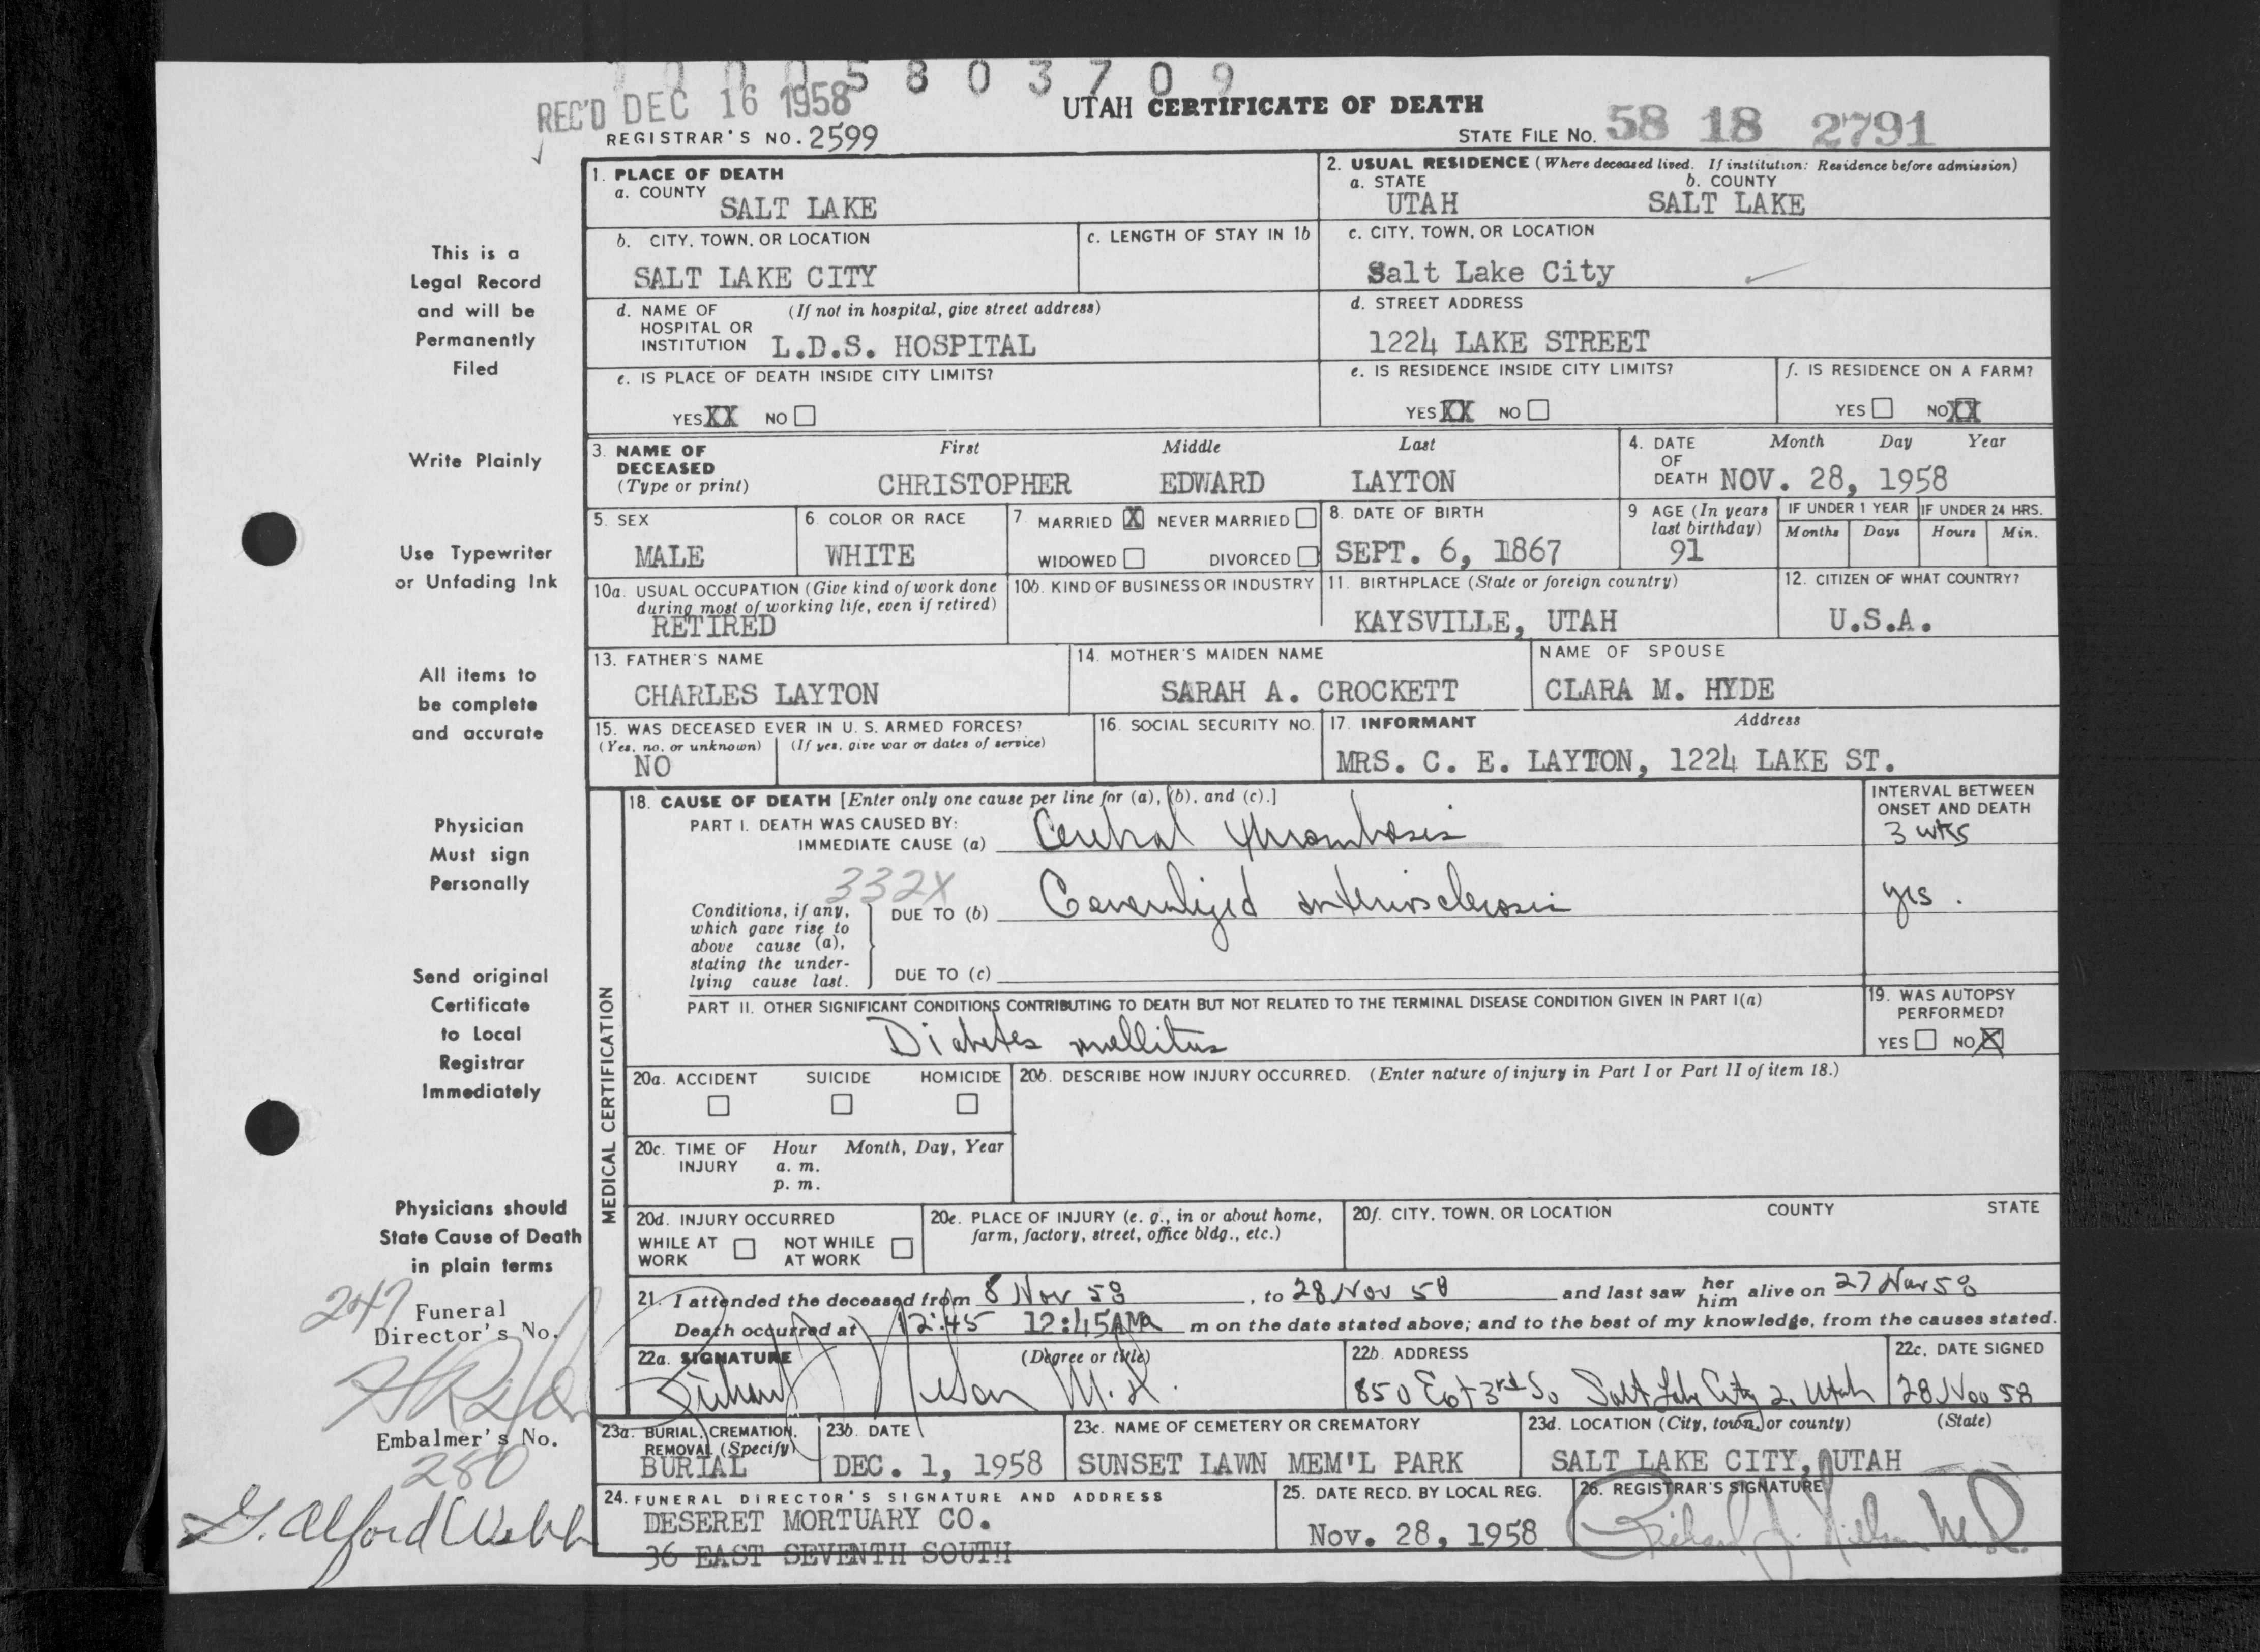 0 0 0 0 5 8 0 3 7 0 9
REC'D DEC 16 1958
UTAH CERTIFICATE OF DEATH
REGISTRAR'S NO. 2599
STATE FILE NO. 58 18 2791
1. PLACE OF DEATH
a. COUNTY
SALT LAKE
2. USUAL RESIDENCE (Where deceased lived. If institution: Residence before admission)
a. STATE b. COUNTY
UTAH SALT LAKE
b. CITY, TOWN, OR LOCATION
SALT LAKE CITY
c. LENGTH OF STAY IN 1b
c. CITY, TOWN, OR LOCATION
Salt Lake City
d. NAME OF (If not in hospital, give street address)
HOSPITAL OR
INSTITUTION L.D.S. HOSPITAL
d. STREET ADDRESS
1224 LAKE STREET
e. IS PLACE OF DEATH INSIDE CITY LIMITS?
YES XX NO
e. IS RESIDENCE INSIDE CITY LIMITS?
YES XX NO
f. IS RESIDENCE ON A FARM?
YES NO XX
3. NAME OF DECEASED (Type or print)
First Middle Last
CHRISTOPHER EDWARD LAYTON
4. DATE OF DEATH
Month Day Year
NOV. 28, 1958
5. SEX
MALE
6 COLOR OR RACE
WHITE
7 MARRIED X NEVER MARRIED
WIDOWED DIVORCED
8. DATE OF BIRTH
SEPT. 6, 1867
9 AGE (In years
last birthday)
91
IF UNDER 1 YEAR IF UNDER 24 HRS.
Months Days Hours Min.
10a. USUAL OCCUPATION (Give kind of work done
during most of working life, even if retired)
RETIRED
10b. KIND OF BUSINESS OR INDUSTRY
11. BIRTHPLACE (State or foreign country)
KAYSVILLE, UTAH
12. CITIZEN OF WHAT COUNTRY?
U.S.A.
13. FATHER'S NAME
CHARLES LAYTON
14. MOTHER'S MAIDEN NAME
SARAH A. CROCKETT
NAME OF SPOUSE
CLARA M. HYDE
15. WAS DECEASED EVER IN U. S. ARMED FORCES?
(Yes, no, or unknown) (If yes, give war or dates of service)
NO
16. SOCIAL SECURITY NO.
17. INFORMANT Address
MRS. C. E. LAYTON, 1224 LAKE ST.
MEDICAL CERTIFICATION
18. CAUSE OF DEATH [Enter only one cause per line for (a), (b), and (c).]
INTERVAL BETWEEN
ONSET AND DEATH
PART I. DEATH WAS CAUSED BY:
IMMEDIATE CAUSE (a) Cerebral thrombosis 3 wks
332X
Conditions, if any,
which gave rise to
above cause (a),
stating the under-
lying cause last.
DUE TO (b) Generalized arteriosclerosis yrs.
DUE TO (c)
PART II. OTHER SIGNIFICANT CONDITIONS CONTRIBUTING TO DEATH BUT NOT RELATED TO THE TERMINAL DISEASE CONDITION GIVEN IN PART I(a)
Diabetes mellitus
19. WAS AUTOPSY
PERFORMED?
YES NO X
20a. ACCIDENT SUICIDE HOMICIDE
20b. DESCRIBE HOW INJURY OCCURRED. (Enter nature of injury in Part I or Part II of item 18.)
20c. TIME OF Hour Month, Day, Year
INJURY a. m.
p. m.
20d. INJURY OCCURRED
WHILE AT WORK NOT WHILE AT WORK
20e. PLACE OF INJURY (e. g., in or about home,
farm, factory, street, office bldg., etc.)
20f. CITY, TOWN, OR LOCATION COUNTY STATE
21. I attended the deceased from 8 Nov 58, to 28 Nov 58 and last saw her him alive on 27 Nov 58
Death occurred at 12:45 12:45AM m on the date stated above; and to the best of my knowledge, from the causes stated.
22a. SIGNATURE (Degree or title)
Richard Nelson M.D.
22b. ADDRESS
850 East 3rd So Salt Lake City 2, Utah
22c. DATE SIGNED
28 Nov 58
23a. BURIAL, CREMATION,
REMOVAL (Specify)
BURIAL
23b. DATE
DEC. 1, 1958
23c. NAME OF CEMETERY OR CREMATORY
SUNSET LAWN MEM'L PARK
23d. LOCATION (City, town, or county) (State)
SALT LAKE CITY, UTAH
24. FUNERAL DIRECTOR'S SIGNATURE AND ADDRESS
DESERET MORTUARY CO.
36 EAST SEVENTH SOUTH
25. DATE RECD. BY LOCAL REG.
Nov. 28, 1958
26. REGISTRAR'S SIGNATURE
Richard J. Nielsen M.D.
This is a
Legal Record
and will be
Permanently
Filed
Write Plainly
Use Typewriter
or Unfading Ink
All items to
be complete
and accurate
Physician
Must sign
Personally
Send original
Certificate
to Local
Registrar
Immediately
Physicians should
State Cause of Death
in plain terms
247
Funeral
Director's No.
Embalmer's No.
280
G. Alford Webb